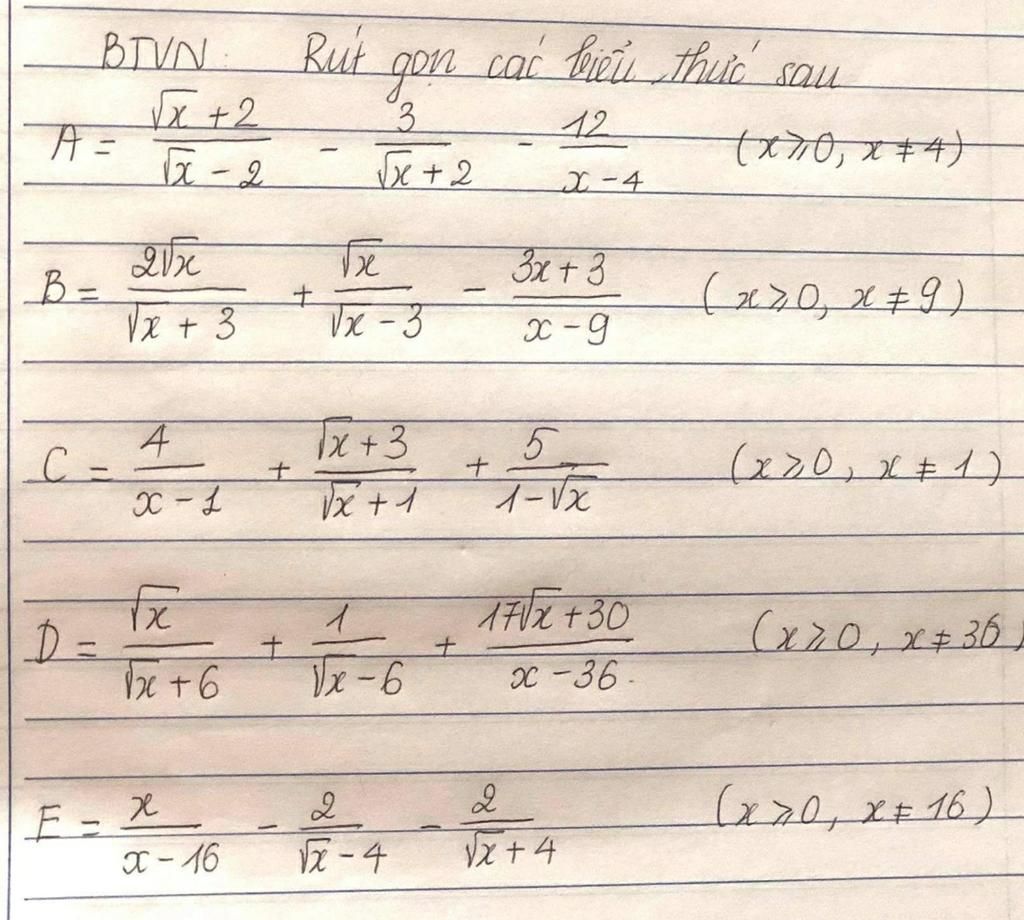 BTVN: Rút gọn các biểu thức sau
A = (√x + 2)/(√x - 2) - 3/(√x + 2) - 12/(x - 4) (x ≥ 0, x ≠ 4)
B = 2√x/(√x + 3) + √x/(√x - 3) - (3x + 3)/(x - 9) (x ≥ 0, x ≠ 9)
C = 4/(x - 1) + (√x + 3)/(√x + 1) + 5/(1 - √x) (x ≥ 0, x ≠ 1)
D = √x/(√x + 6) + 1/(√x - 6) + (17√x + 30)/(x - 36) (x ≥ 0, x ≠ 36)
E = x/(x - 16) - 2/(√x - 4) - 2/(√x + 4) (x ≥ 0, x ≠ 16)